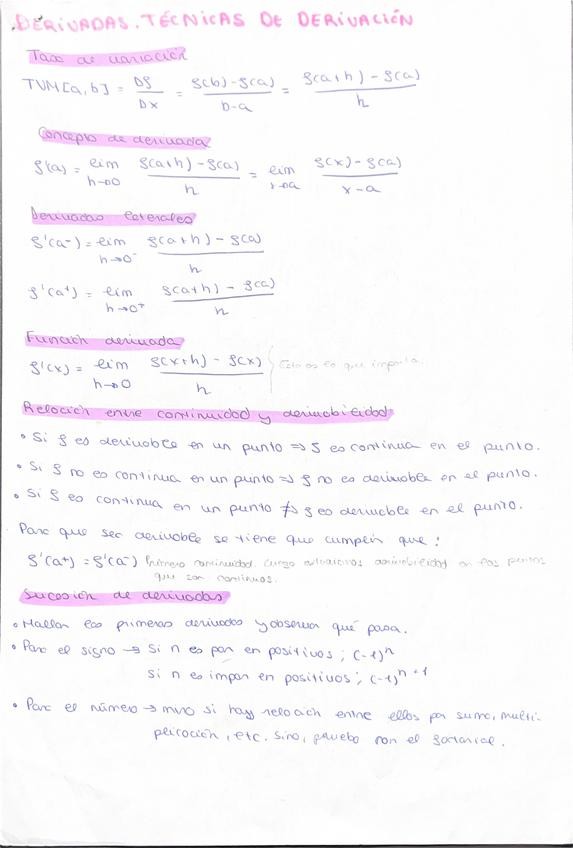 DERIVADAS. TÉCNICAS DE DERIVACIÓN
Tasa de variación
TVM[a,b] = Df/Dx = (f(b)-f(a))/(b-a) = (f(a+h)-f(a))/h
Concepto de derivada
f'(a) = lim h→0 (f(a+h)-f(a))/h = lim x→a (f(x)-f(a))/(x-a)
Derivadas laterales
f'(a⁻) = lim h→0⁻ (f(a+h)-f(a))/h
f'(a⁺) = lim h→0⁺ (f(a+h)-f(a))/h
Función derivada
f'(x) = lim h→0 (f(x+h)-f(x))/h } Esto es lo que importa.
Relación entre continuidad y derivabilidad
• Si f es derivable en un punto ⇒ f es continua en el punto.
• Si f no es continua en un punto ⇒ f no es derivable en el punto.
• Si f es continua en un punto ⇏ f es derivable en el punto.
Para que sea derivable se tiene que cumplir que:
f'(a⁺) = f'(a⁻) Primero continuidad. Luego estudiamos derivabilidad en los puntos
que son continuos.
Sucesión de derivadas
• Hallar las primeras derivadas y observar qué pasa.
• Para el signo → si n es par en positivos; (-1)ⁿ
si n es impar en positivos; (-1)ⁿ⁺¹
• Para el número → miro si hay relación entre ellos por suma, multi-
plicación, etc. Sino, pruebo con el factorial.